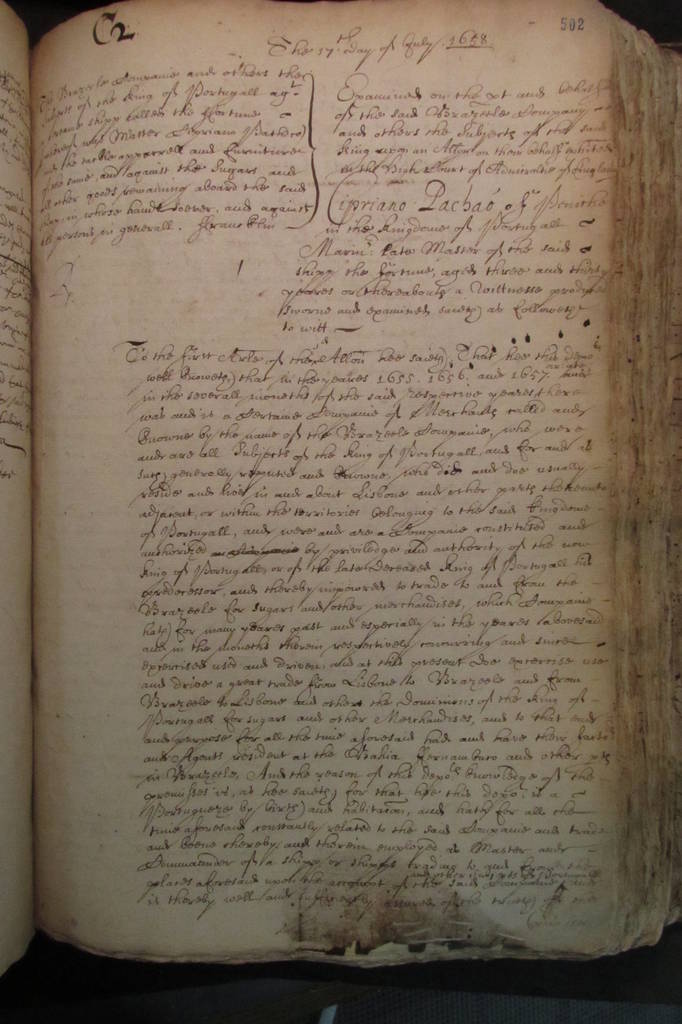 C2
502
The 17th day of July 1658
The Brazeele Companie and others the
subjects of the King of Portugall agt
a certaine shipp called the ffortune
whereof was Master Cipriano Pachaeo
and the tackle apparrell and ffurniture
of the same and against the Sugars and
all other goods remaining aboard the said
shipp in whose hands soever, and against
all persons in generall. ffrancklin
Examined on the pt and behalfe
of the said Brazeele Company
and others the Subjects of the said
King upon an Allon on their behalf entred
in the high Court of Admiraltie of England
Cipriano Pachaó of Peniche
in the Kingdome of Portugall
Marinr late Master of the said
shipp the ffortune, aged three and thirty
yeares or thereabouts a Wittnesse produced
sworne and examined saieth as followeth
to witt
To the first Arle of the sd Allon hee saieth, That hee this depot
well knoweth that in the yeares 1655. 1656. and 1657.
in the severall moneths of the said respective yeares, there
was and is a Certaine Companie of Merchants called and
knowne by the name of the Brazeele Companie, who were
and are all Subjects of the King of Portugall, and for and as
such generally reputed and knowne, who did and doe usually
reside and live in and about Lisbone and other parts thereunto
adjacent, or within the territories belonging to the said Kingdome
of Portugall, and were and are a Companie constituted and
authorized by priviledge and authority of the now
King of Portugall, or of the late deceased King of Portugall his
predecessor, and thereby impowred to trade to and from the
Brazeele for sugars and other merchandizes, which Companie
hath for many yeares past and especially in the yeares abovesaid
and in the moneths therein respectively concurring and since
exercised used and driven, and at this present doe exercise use
and drive a great trade from Lisbone to Brazeele and from
Brazeele to Lisbone and others the Dominions of the King of
Portugall for sugars and other Merchandizes, and to that end
and purpose for all the time aforesaid had and have their factors
and Agents resident at the Bahia Fernambuco and other pts
in Brazeele, And the reason of this depots knowledge of the
premisses is, as hee saieth, for that hee this depot is a
Portugueze by birth and habitacon, and hath for all the
time aforesaid constantly related to the said Companie and trade
and beene thereby and therein employed as Master and
Commaunder of a shipp or shipps trading to and from the
places aforesaid upon the account of the said Companie and
and other in pts of Portugall
is thereby well and sufficiently assured of the truth of